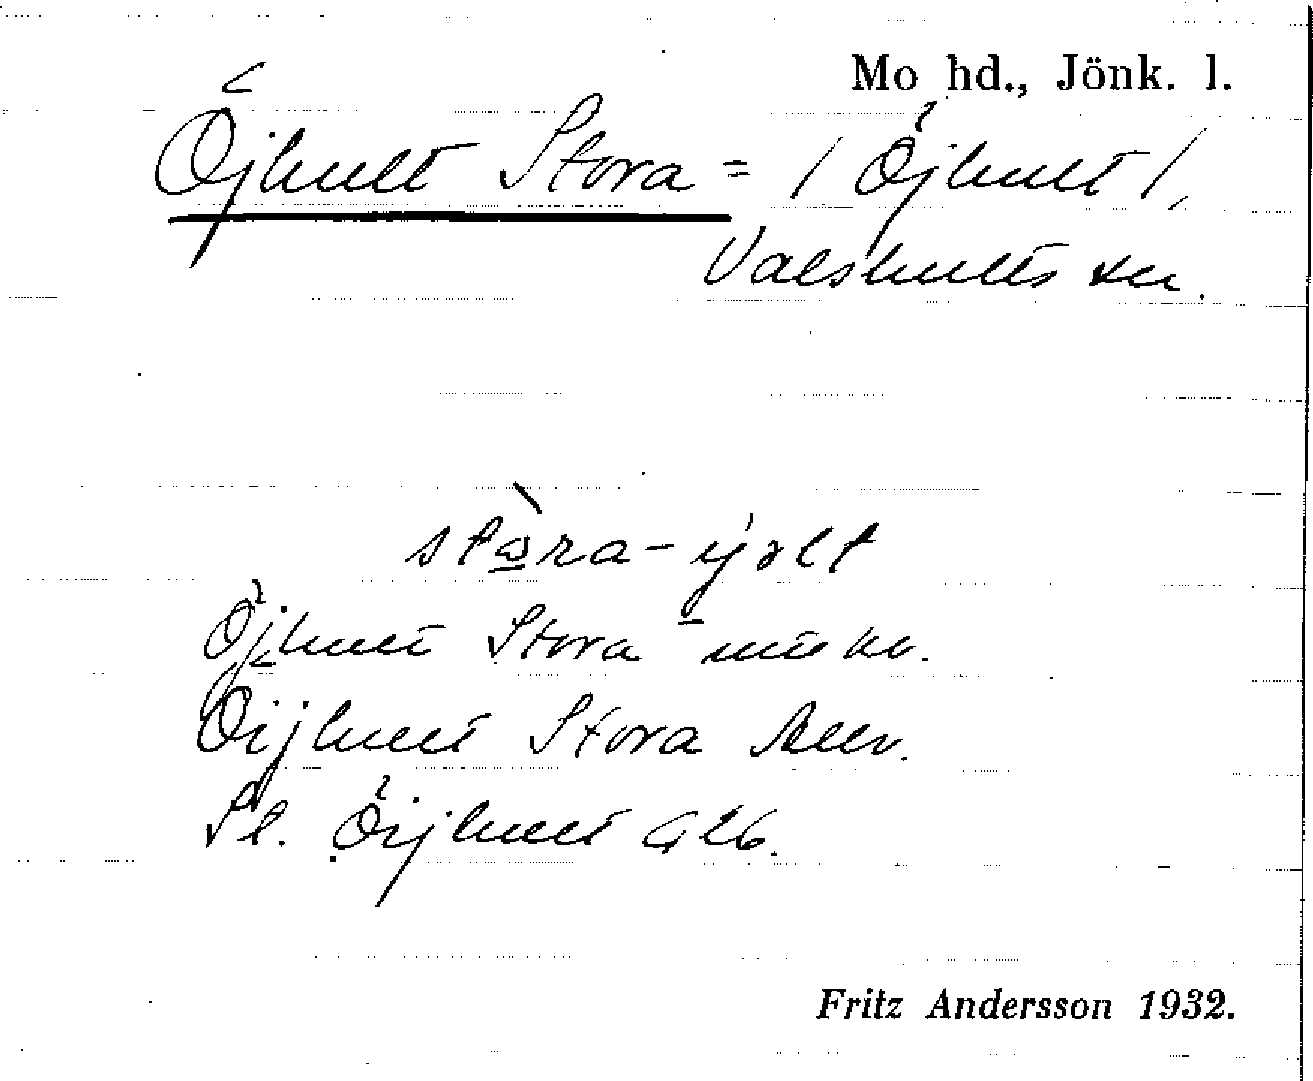 Mo hd., Jönk. l.
Öjhult Stora = / Öjhult /,
Valshults sn.
stora-
Öjhult Stora
Öijhult Stora
St. Öijhult GEb.
Fritz Andersson 1932.